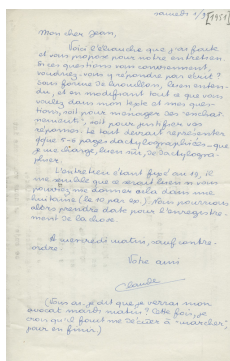 samedi 1/9 [1951]
Mon cher Jean,
Voici l'ébauche que j'ai faite
et vous propose pour notre entretien.
Si ces questions vous conviennent,
voudriez-vous y répondre par écrit ?
Sous forme de brouillon, bien enten-
du, et en modifiant tout ce que vous
voulez dans mon texte et mes ques-
tions, soit pour ménager des "enchaî-
nements", soit pour justifier vos
réponses. Le tout devrait représenter
5-6 pages dactylographiées - que
je me charge, bien sûr, de dactylogra-
phier.
L'entretien étant fixé au 13, il
me semble que ce serait bien si vous
pouviez me donner cela dans une
huitaine (le 10 par ex.). Nous pourrions
alors prendre date pour l'enregistre-
ment de la chose.
A mercredi matin, sauf contre-
ordre.
Votre ami
Claude
(Vous ai-je dit que je verrai mon
avocat mardi matin ? Cette fois, je
crois qu'il faut me décider à "marcher",
pour en finir)